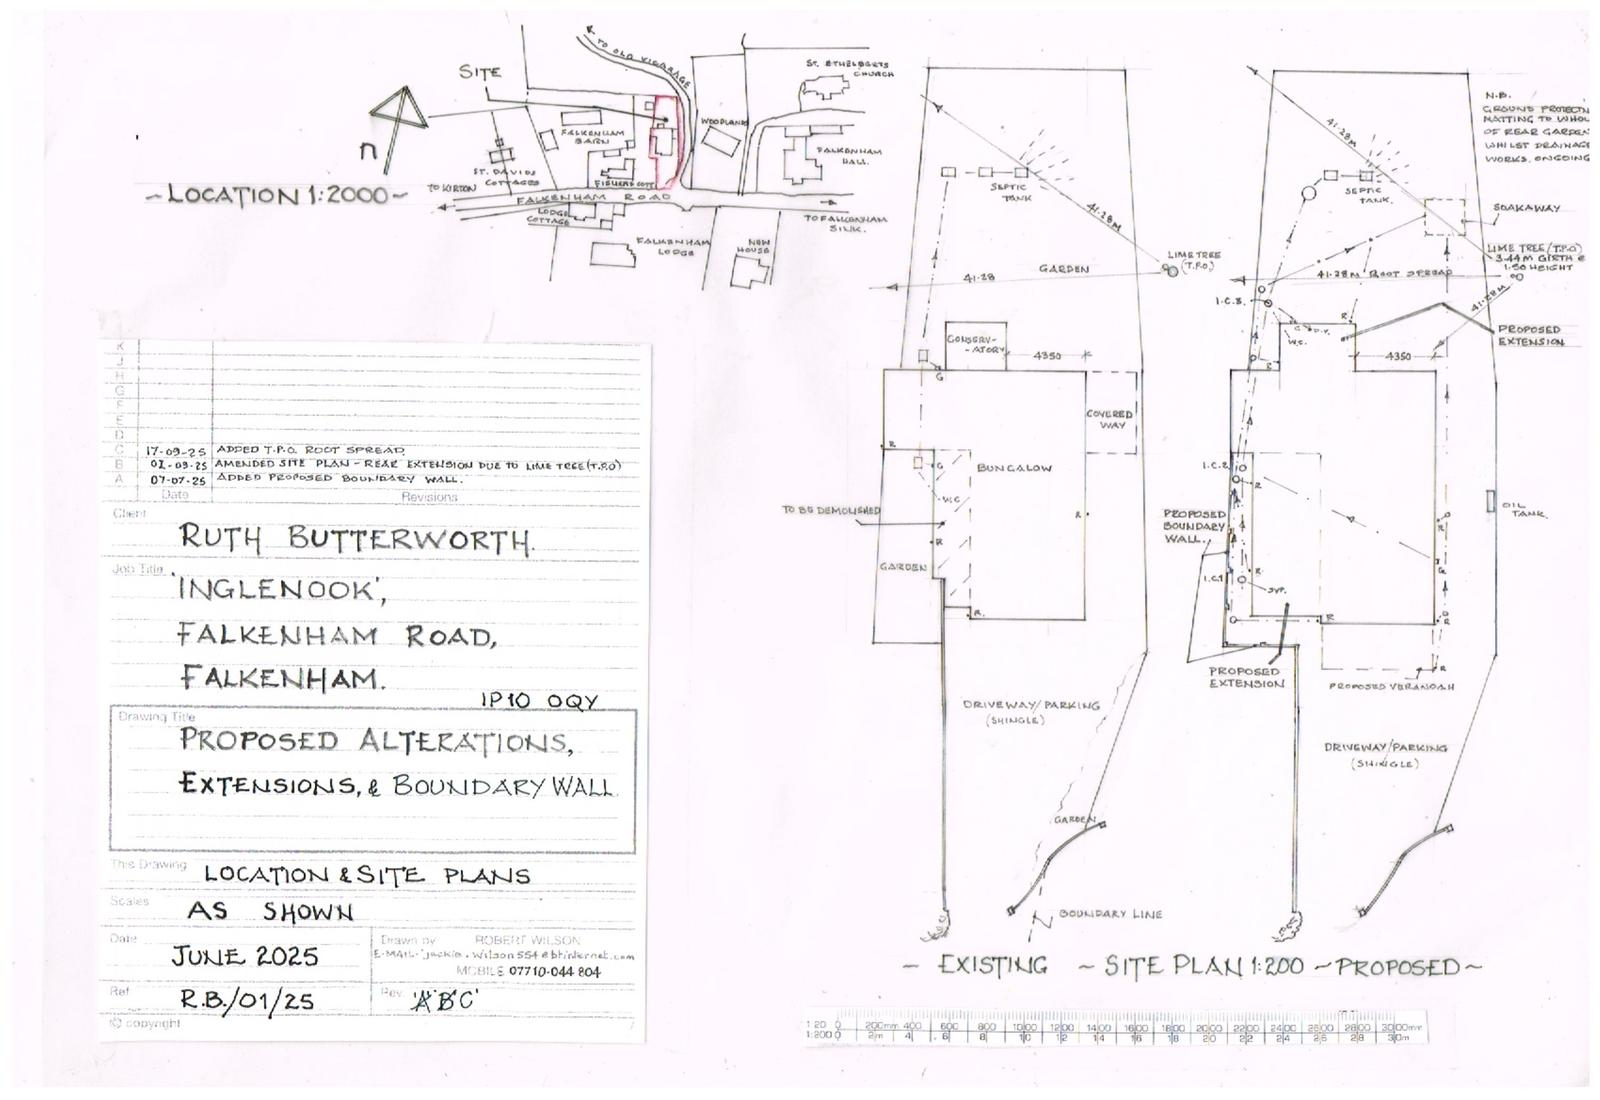 SITE
TO OLD VICARAGE
ST. ETHELBERTS
CHURCH
FALKENHAM
BARN
WOODLANDS
FALKENHAM
HALL.
n
ST. DAVIDS
COTTAGES
FISHERS COTT.
~LOCATION 1:2000~
TO KIRTON
FALKENHAM ROAD
LODGE
COTTAGE
TO FALKENHAM
SINK.
FALKENHAM
LODGE
NEW
HOUSE
K
J
H
G
F
E
D
C 17-09-25 ADDED T.P.O. ROOT SPREAD
B 01-09-25 AMENDED SITE PLAN - REAR EXTENSION DUE TO LIME TREE (T.P.O)
A 07-07-25 ADDED PROPOSED BOUNDARY WALL.
Date Revisions
Client
RUTH BUTTERWORTH.
Job Title
'INGLENOOK',
FALKENHAM ROAD,
FALKENHAM.
IP10 0QY
Drawing Title
PROPOSED ALTERATIONS,
EXTENSIONS, & BOUNDARY WALL
This Drawing
LOCATION & SITE PLANS
Scales
AS SHOWN
Date
JUNE 2025
Drawn by ROBERT WILSON
E-MAIL- jackie.wilson554@btinternet.com
MOBILE 07710-044 804
Ref
R.B./01/25
Rev. 'A'B'C'
© copyright
SEPTIC
TANK
41·28M
LIME TREE
(T.P.O.)
41·28
GARDEN
CONSERV-
-ATORY
4350
G
COVERED
WAY
R
G
BUNGALOW
W.C
TO BE DEMOLISHED
R
R
GARDEN
R.
DRIVEWAY/PARKING
(SHINGLE)
GARDEN
BOUNDARY LINE
N.B.
GROUND PROTECTIN
MATTING TO WHOL
OF REAR GARDEN
WHILST DRAINAGE
WORKS, ONGOING
41·28M
SEPTIC
TANK.
SOAKAWAY
LIME TREE (T.P.O)
3.44M GIRTH @
1.50 HEIGHT
41·28M ROOT SPREAD
41·28M
I.C.3.
R
W.C.
PROPOSED
EXTENSION
4350
I.C.2
R
PROPOSED
BOUNDARY
WALL.
OIL
TANK.
R
R
G
I.C.1
SVP.
R
R
R
PROPOSED
EXTENSION
PROPOSED VERANDAH
DRIVEWAY/PARKING
(SHINGLE)
- EXISTING ~ SITE PLAN 1:200 ~ PROPOSED ~
1:20 0 200mm 400 600 800 1000 1200 1400 1600 1800 2000 2200 2400 2600 2800 3000mm
1:200 0 2m 4 6 8 10 12 14 16 18 20 22 24 26 28 30m